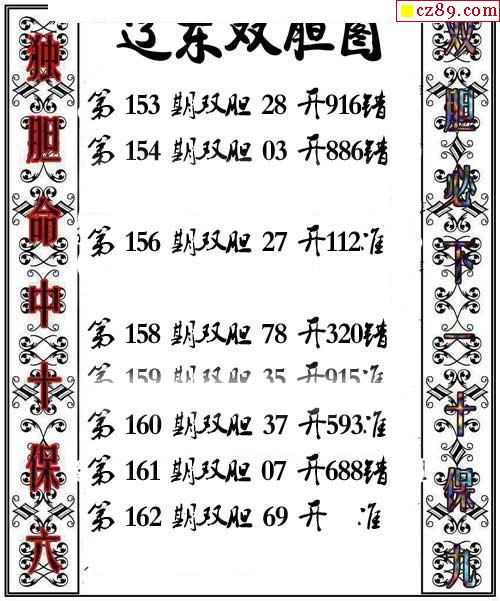 cz89.com
辽东双胆图
独胆命中十保六
双胆必下一十保九
第 153 期双胆 28 开916错
第 154 期双胆 03 开886错
第 156 期双胆 27 开112准
第 158 期双胆 78 开320错
第 159 期双胆 35 开915准
第 160 期双胆 37 开593准
第 161 期双胆 07 开688错
第 162 期双胆 69 开 准